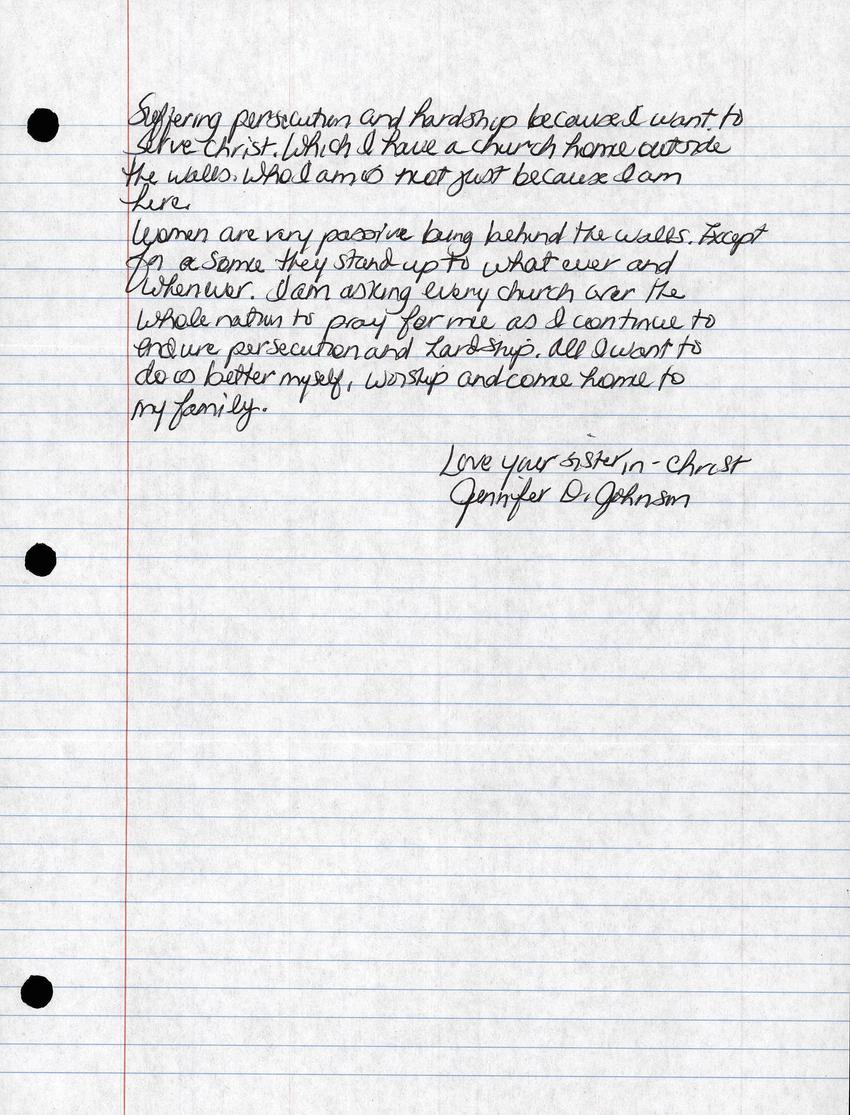 Suffering persecution and hardship because I want to
serve Christ. Which I have a church home outside
the walls. Who I am is not just because I am
here.
Women are very passive being behind the walls. Except
for a some they stand up to what ever and
whenever. I am asking every church over the
whole nation to pray for me as I continue to
endure persecution and hardship. All I want to
do is better myself, worship and come home to
my family.
Love your sister in-Christ
Jennifer D. Johnson